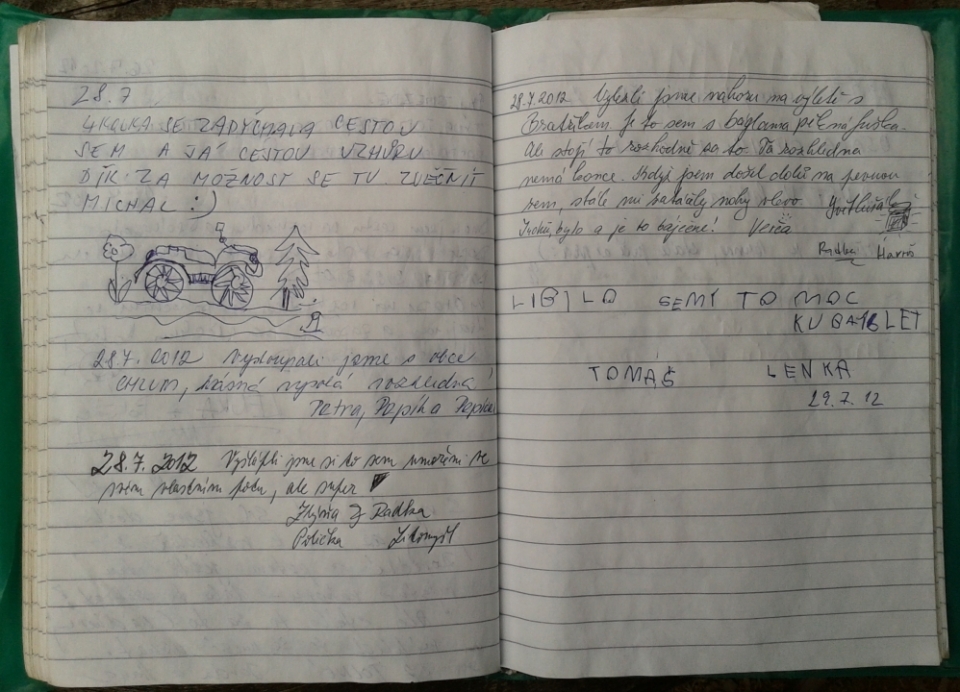 28.7
4KOLKA SE ZADÝCHALA CESTOU
SEM A JÁ CESTOU VZHŮRU
DÍK ZA MOŽNOST SE TU ZVĚČNIT
MICHAL :)
28.7. 2012 Vystoupali jsme s obce
CHLUM, krásná vysoká rozhledna!
Petra, Pepík a Pepíček
28.7. 2012 Vyšlápli jsme si to sem umořeni ve
svém vlastním potu, ale super
Z Radka
Polička Litomyšl
28.7.2012 Vylezli jsme nahoru na výletě s
Bratříčkem. Je to sem s báglama pěkná fuška.
Ale stojí to rozhodně za to. Ta rozhledna
nemá konce. Když jsem došel dolů na pevnou
zem, stále mi nohy
bylo a je to báječné! Verča
Radka
LIBILO SEMI TO MOC
KUBA 6 LET
TOMÁŠ LENKA
29.7. 12